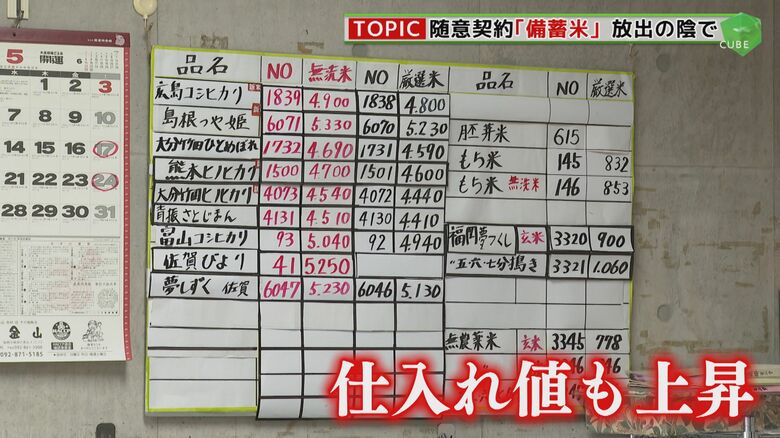 TOPIC 随意契約「備蓄米」 放出の陰で
CUBE
5
開運
6
水 木 金 土
1 2 3
7 8 9 10
14 15 16 17
21 22 23 24
28 29 30 31
金山
092-871-5185
品名 NO 無洗米 NO 厳選米
広島コシヒカリ 1839 4.900 1838 4.800
島根つや姫 6071 5.330 6070 5.230
大分竹田ひとめぼれ 1732 4.690 1731 4.590
熊本ヒノヒカリ 1500 4.700 1501 4.600
大分竹田ヒノヒカリ 4073 4.540 4072 4.440
青振さとじまん 4131 4.510 4130 4.410
富山コシヒカリ 93 5.040 92 4.940
佐賀びより 41 5250
夢しずく 佐賀 6047 5.230 6046 5.130
品名 NO 厳選米
胚芽米 615
もち米 145 832
もち米 無洗米 146 853
福岡夢つくし 玄米 3320 900
〃五・六・七分搗き 3321 1.060
無農薬米 玄米 3345 778
仕入れ値も上昇